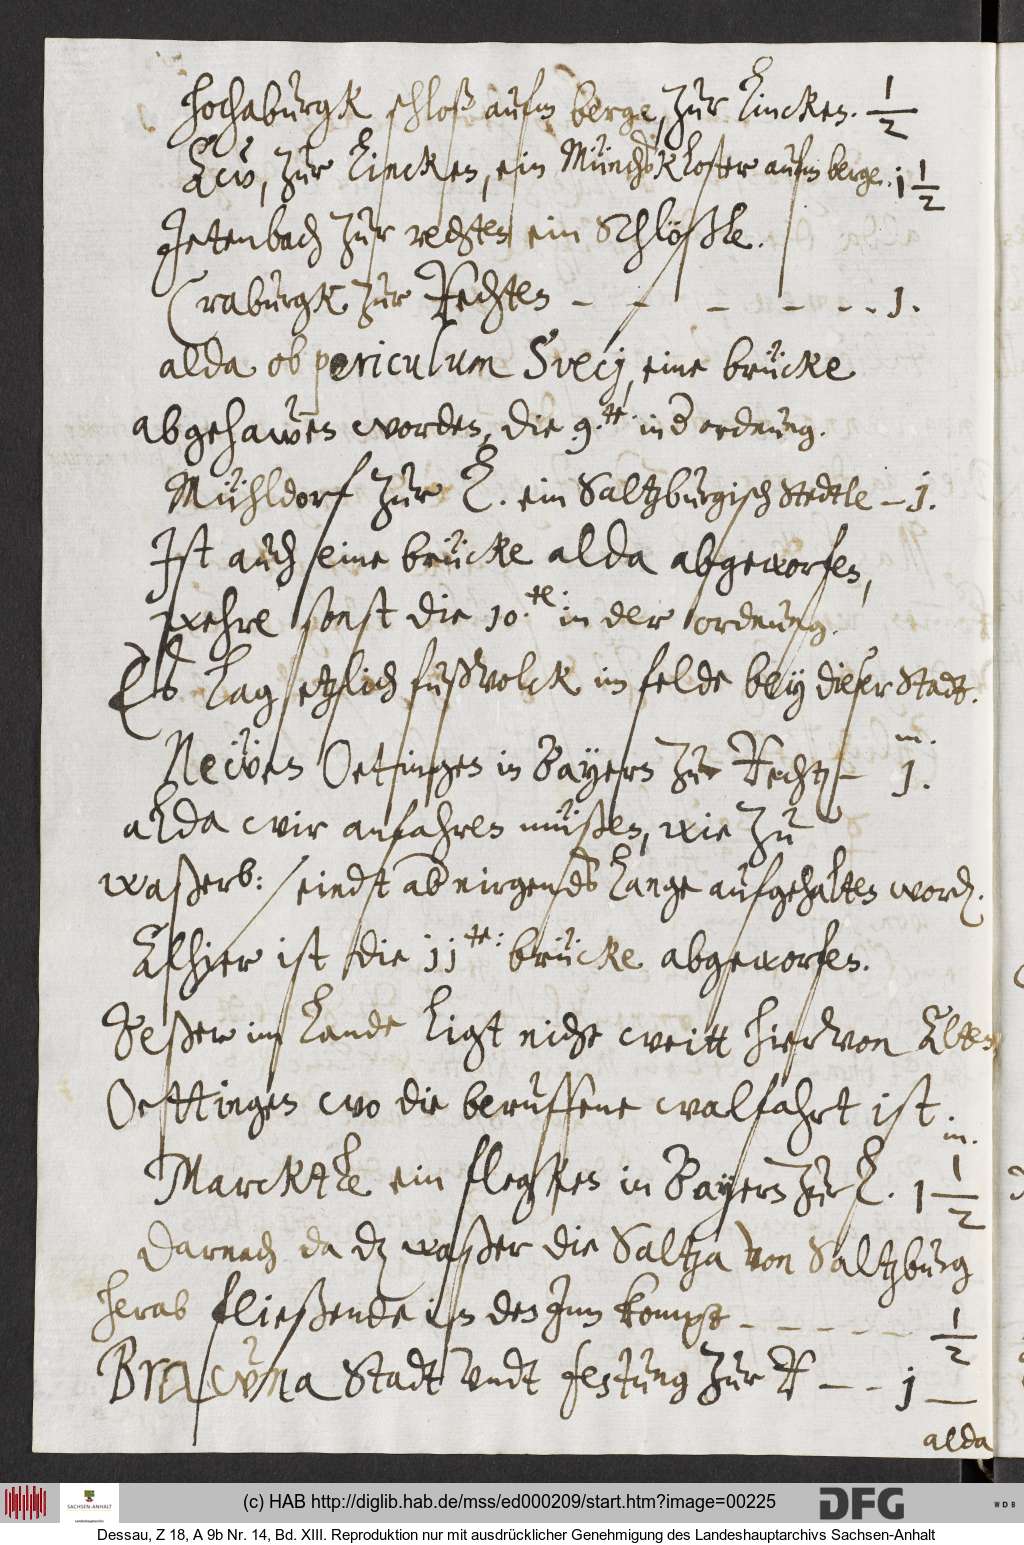 Hochaburgk schloß aufm berge, zur Lincken. 1/2
Aw, zur Lincken, ein Münchskloster aufm berge. 1 1/2
Jetenbach zur rechten ein Schlößle.
Craburgk zur Rechten – – – – – – 1.
alda ob periculum Sveci, eine brücke
abgehawen worden, die 9.te in der ordnung.
Mühldorf zur L. ein Saltzburgisch Stedtle – 1.
Ist auch eine brücke alda abgeworfen,
wehre sonst die 10.te in der ordnung.
Es lag etzlich fußvolck im felde bey dieser Stadt.
m.
Neüen Oetingen in Bayern zur Recht – 1.
alda wir anfahren müßen, wie zu
waßerb: seindt ab nirgends lange aufgehalten word.
Alhier ist die 11te: brücke abgeworfen.
Beßer im Lande ligt nicht weitt hiervon Alten
Oettingen wo die beruffene walfahrt ist.
m.
Marcktle ein flegken in Bayern zur L. 1 1/2
Darnach da dz waßer die Saltza von Saltzburg
herab fließende in den Inn kompt – – – – – 1/2
Brawna Stadt undt festung zur R – – 1 —
alda
(c) HAB http://diglib.hab.de/mss/ed000209/start.htm?image=00225
SACHSEN-ANHALT
DFG
WDB
Dessau, Z 18, A 9b Nr. 14, Bd. XIII. Reproduktion nur mit ausdrücklicher Genehmigung des Landeshauptarchivs Sachsen-Anhalt